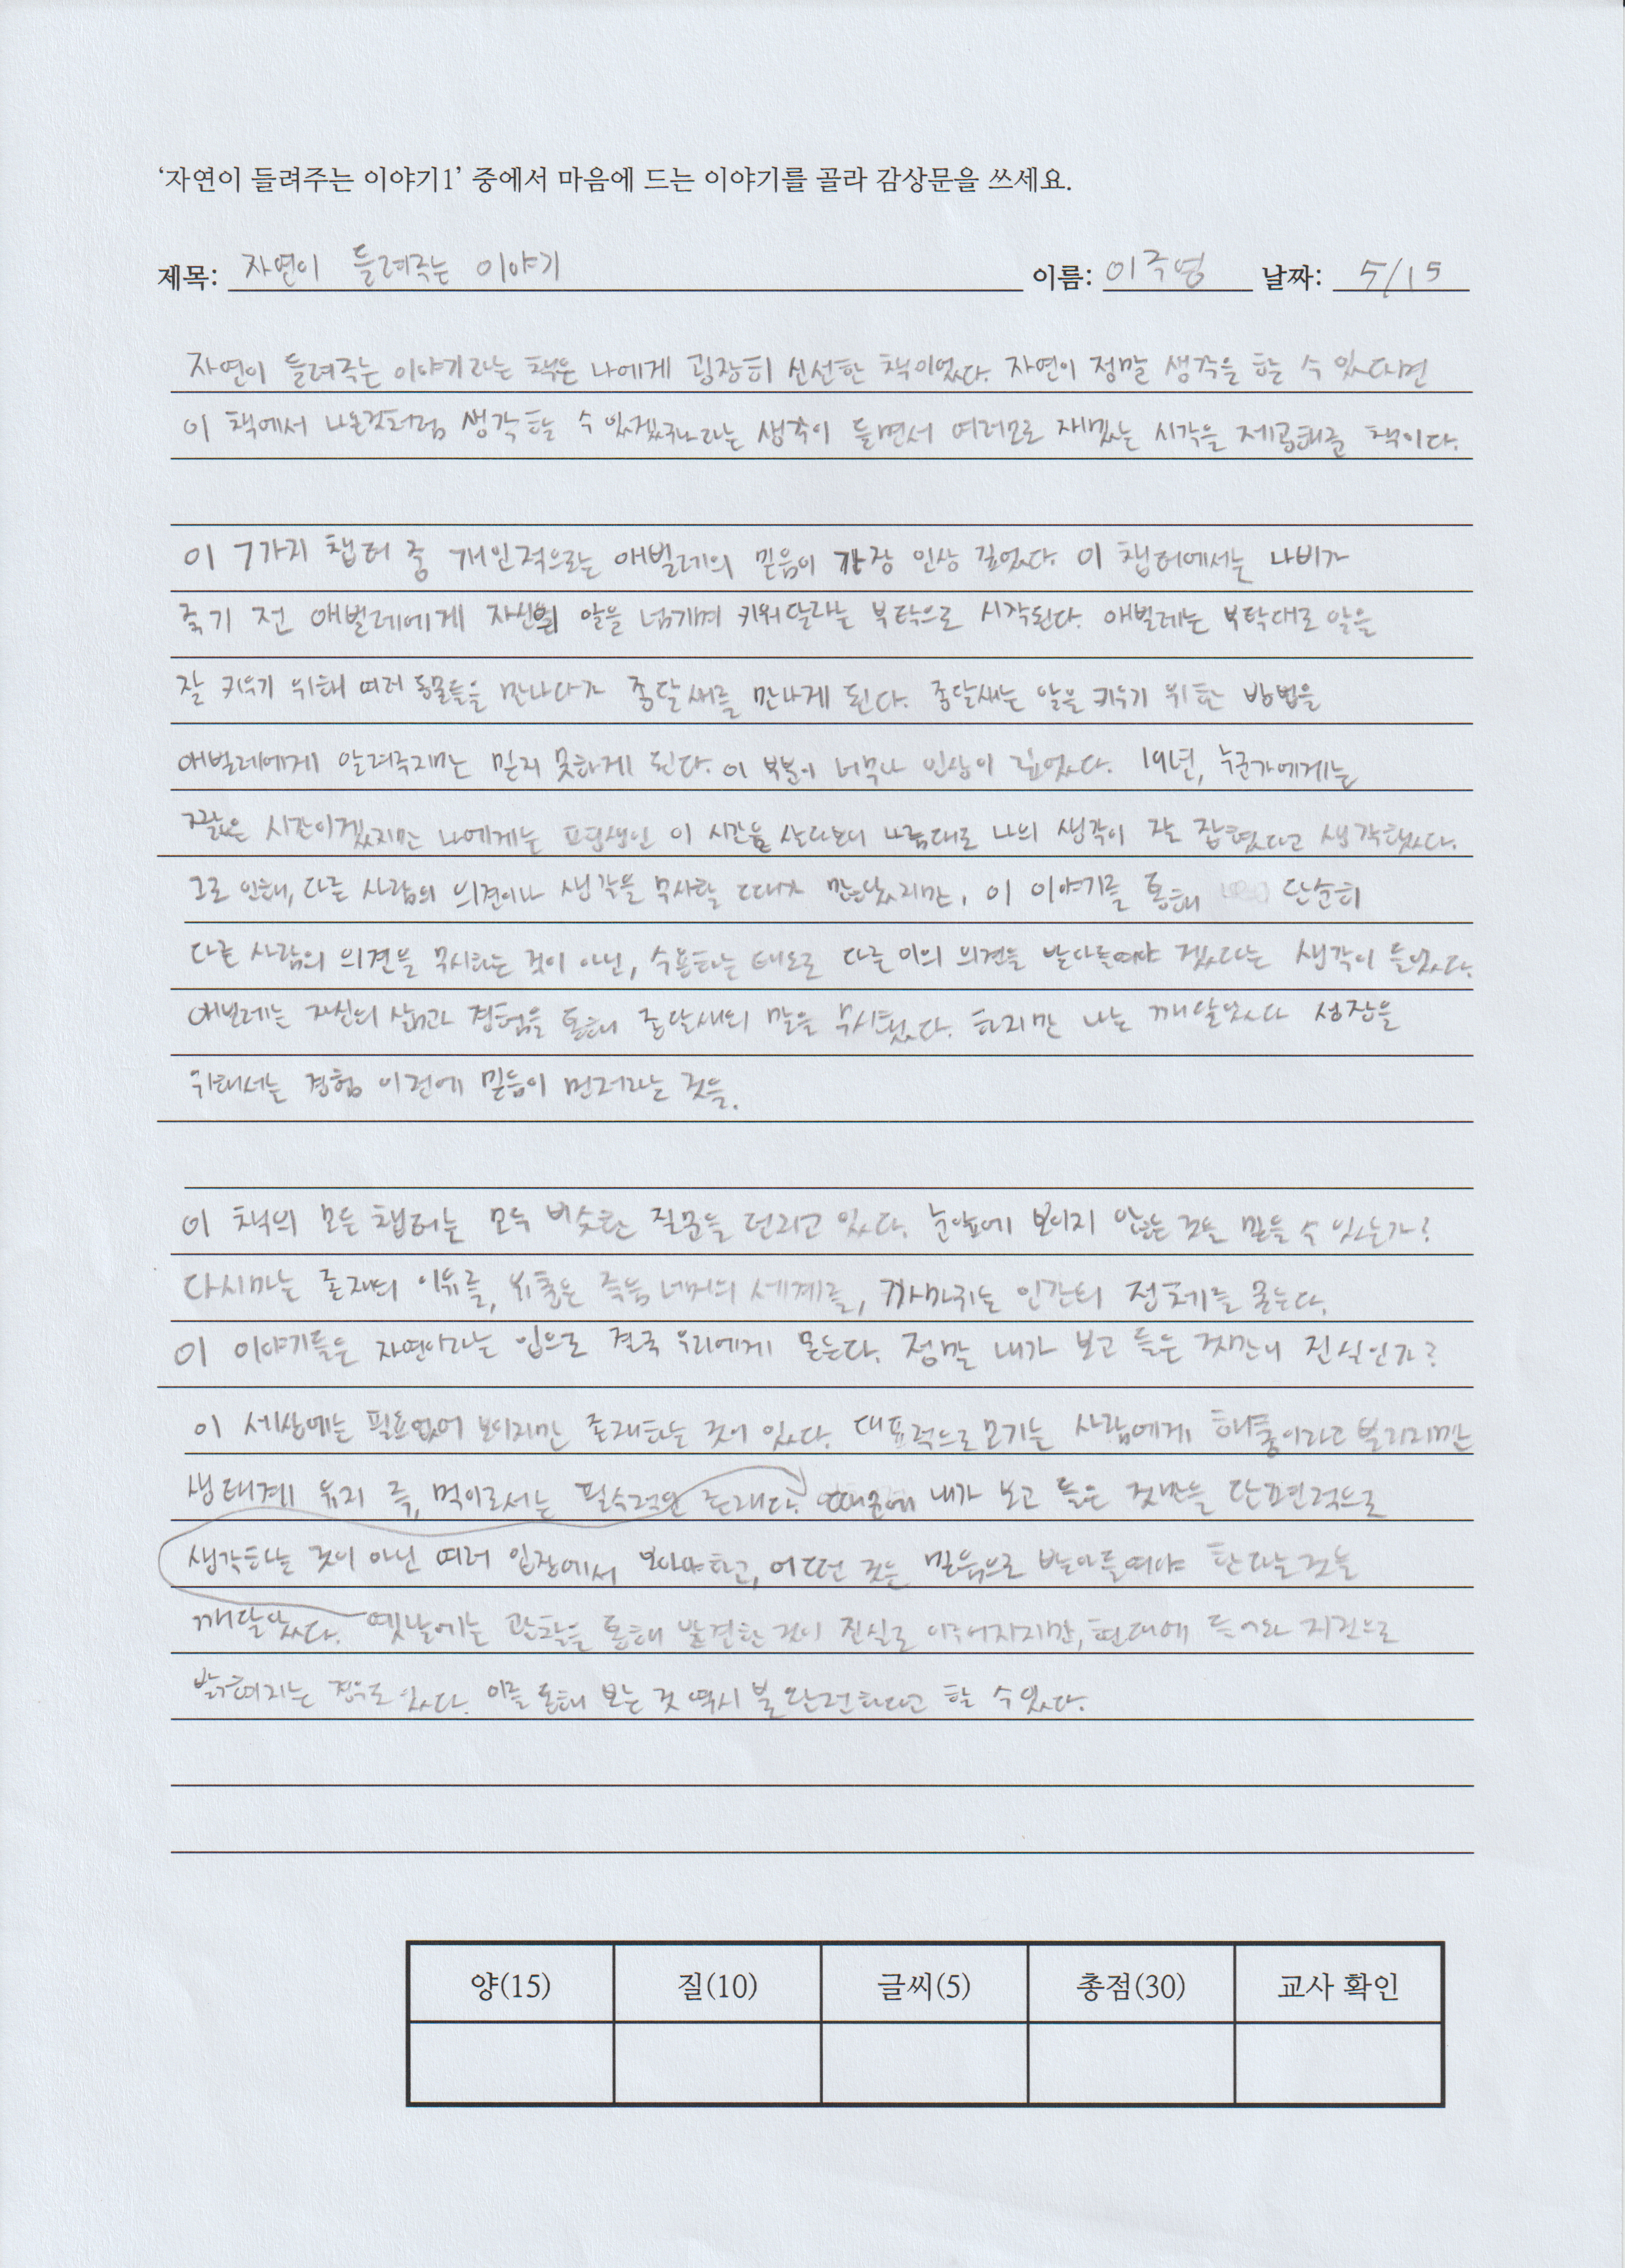 '자연이 들려주는 이야기1' 중에서 마음에 드는 이야기를 골라 감상문을 쓰세요.
제목: 자연이 들려주는 이야기 이름: 이주영 날짜: 5/15
자연이 들려주는 이야기라는 책은 나에게 굉장히 신선한 책이었다. 자연이 정말 생각을 할 수 있다면
이 책에서 나온것처럼 생각할 수 있겠구나라는 생각이 들면서 여러모로 재밌는 시각을 제공해준 책이다.
이 7가지 챕터 중 개인적으로는 애벌레의 믿음이 가장 인상 깊었다. 이 챕터에서는 나비가
죽기 전 애벌레에게 자신의 알을 넘기며 키워달라는 부탁으로 시작된다. 애벌레는 부탁대로 알을
잘 키우기 위해 여러 동물들을 만나다가 종달새를 만나게 된다. 종달새는 알을 키우기 위한 방법을
애벌레에게 알려주지만 믿지 못하게 된다. 이 부분이 너무나 인상이 깊었다. 19년, 누군가에게는
짧은 시간이겠지만 나에게는 평생인 이 시간을 살다보니 나름대로 나의 생각이 잘 잡혔다고 생각했다.
그로 인해, 다른 사람의 의견이나 생각을 무시할 때가 많았지만, 이 이야기를 통해 단순히
다른 사람의 의견을 무시하는 것이 아닌, 수용하는 태도로 다른 이의 의견을 받아들여야 겠다는 생각이 들었다.
애벌레는 자신의 삶과 경험을 통해 종달새의 말을 무시했다. 하지만 나는 깨달았다 성장을
위해서는 경험 이전에 믿음이 먼저라는 것을.
이 책의 모든 챕터는 모두 비슷한 질문을 던지고 있다. 눈앞에 보이지 않는 것을 믿을 수 있는가?
다시마는 존재의 이유를, 유충은 죽음 너머의 세계를, 까마귀는 인간의 정체를 묻는다.
이 이야기들은 자연이라는 입으로 결국 우리에게 묻는다. 정말 내가 보고 들은 것만이 진실인가?
이 세상에는 필요없어 보이지만 존재하는 것이 있다. 대표적으로 모기는 사람에게 해충이라고 불리지만
생태계 유지 즉, 먹이로서는 필수적인 존재다. 내가 보고 들은 것만을 단편적으로
생각하는 것이 아닌 여러 입장에서 보아야하고, 어떤 것은 믿음으로 받아들여야 한다는것을
깨달았다. 옛날에는 관찰을 통해 발견한 것이 진실로 현대에 들어와
밝혀지는 경우도 있다. 이를 통해 보는 것 역시 불완전하다고 할 수있다.
양(15) 질(10) 글씨(5) 총점(30) 교사 확인